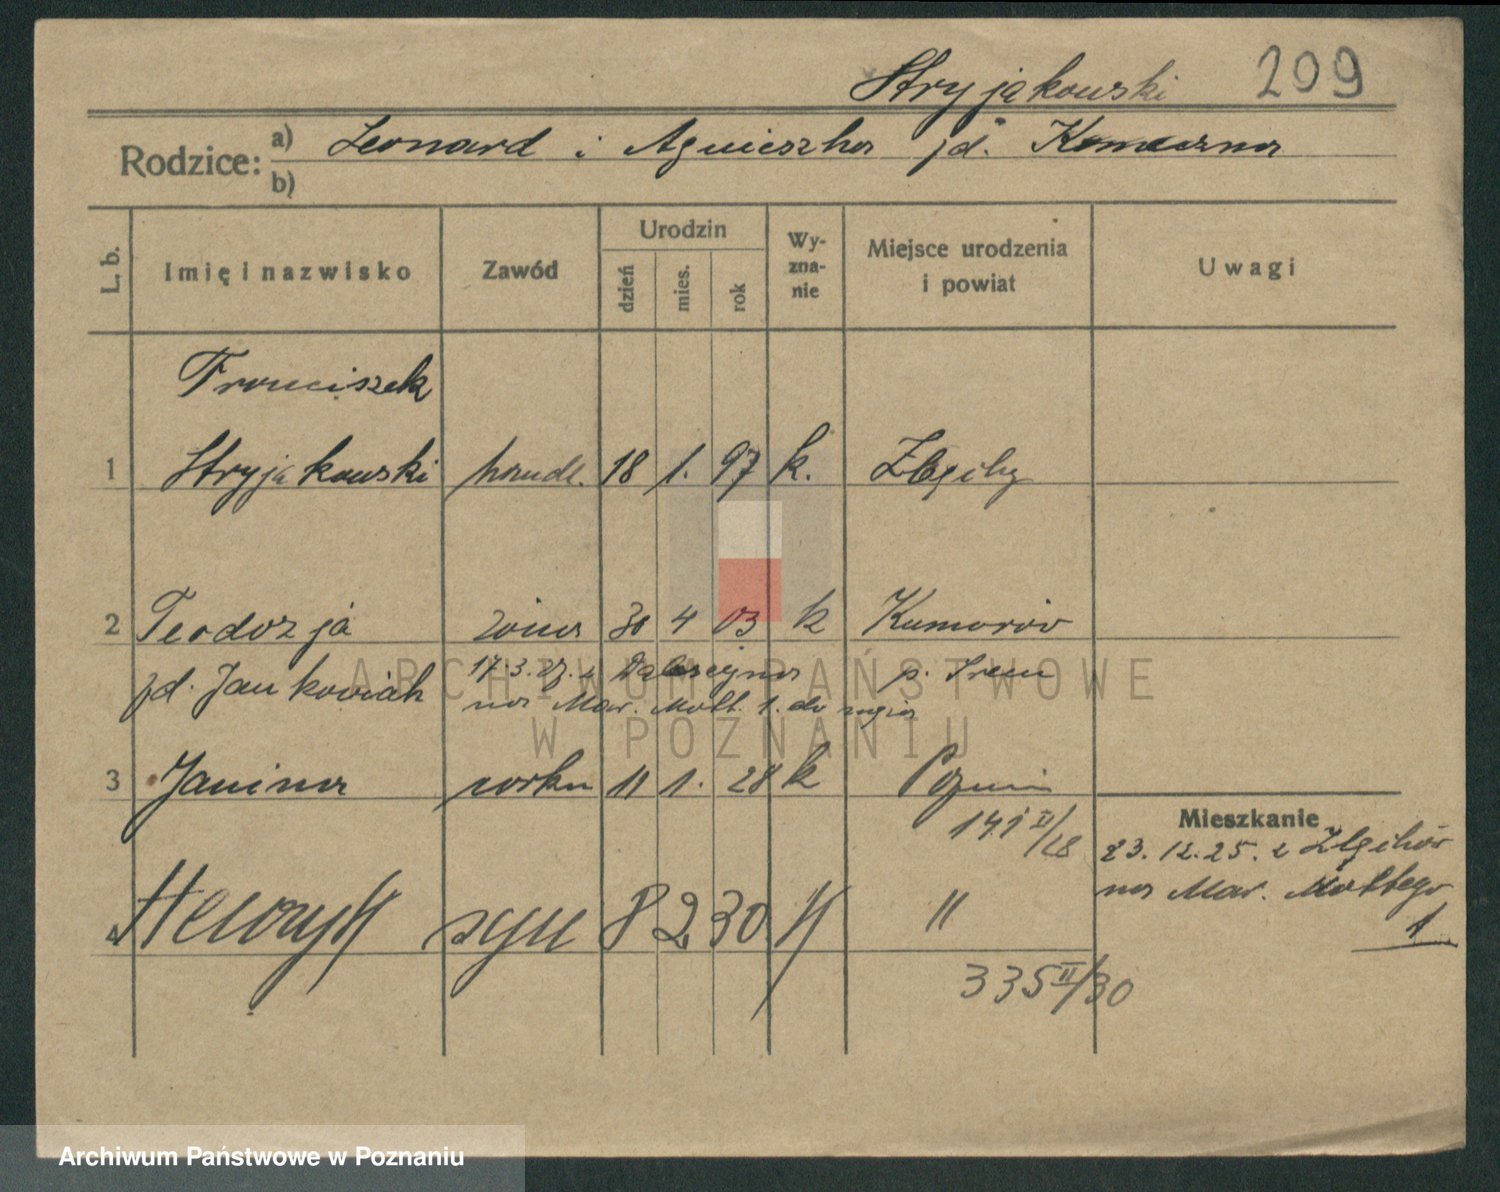 Stryjakowski 209
Rodzice: a) Leonard i Agnieszka zd.
b)
L. b. Imię i nazwisko Zawód Urodzin dzień mies. rok Wy-zna-nie Miejsce urodzenia i powiat Uwagi
Franciszek
1 Stryjakowski handl. 18 1. 97 k.
2 Teodozja żona 30 4 03 k Komorów
zd. Jankowiak 17.3.27. z p. Śrem
na Mar. Mott. 1. do męża
3 Janina córka 11 1. 28 k Poznań
141 II/28
Mieszkanie
23.12.25. z
na Mar. Mottego
1
4 Henryk syn 8 2 30 k "
335 II/30
ARCHIWUM PAŃSTWOWE
W POZNANIU
Archiwum Państwowe w Poznaniu